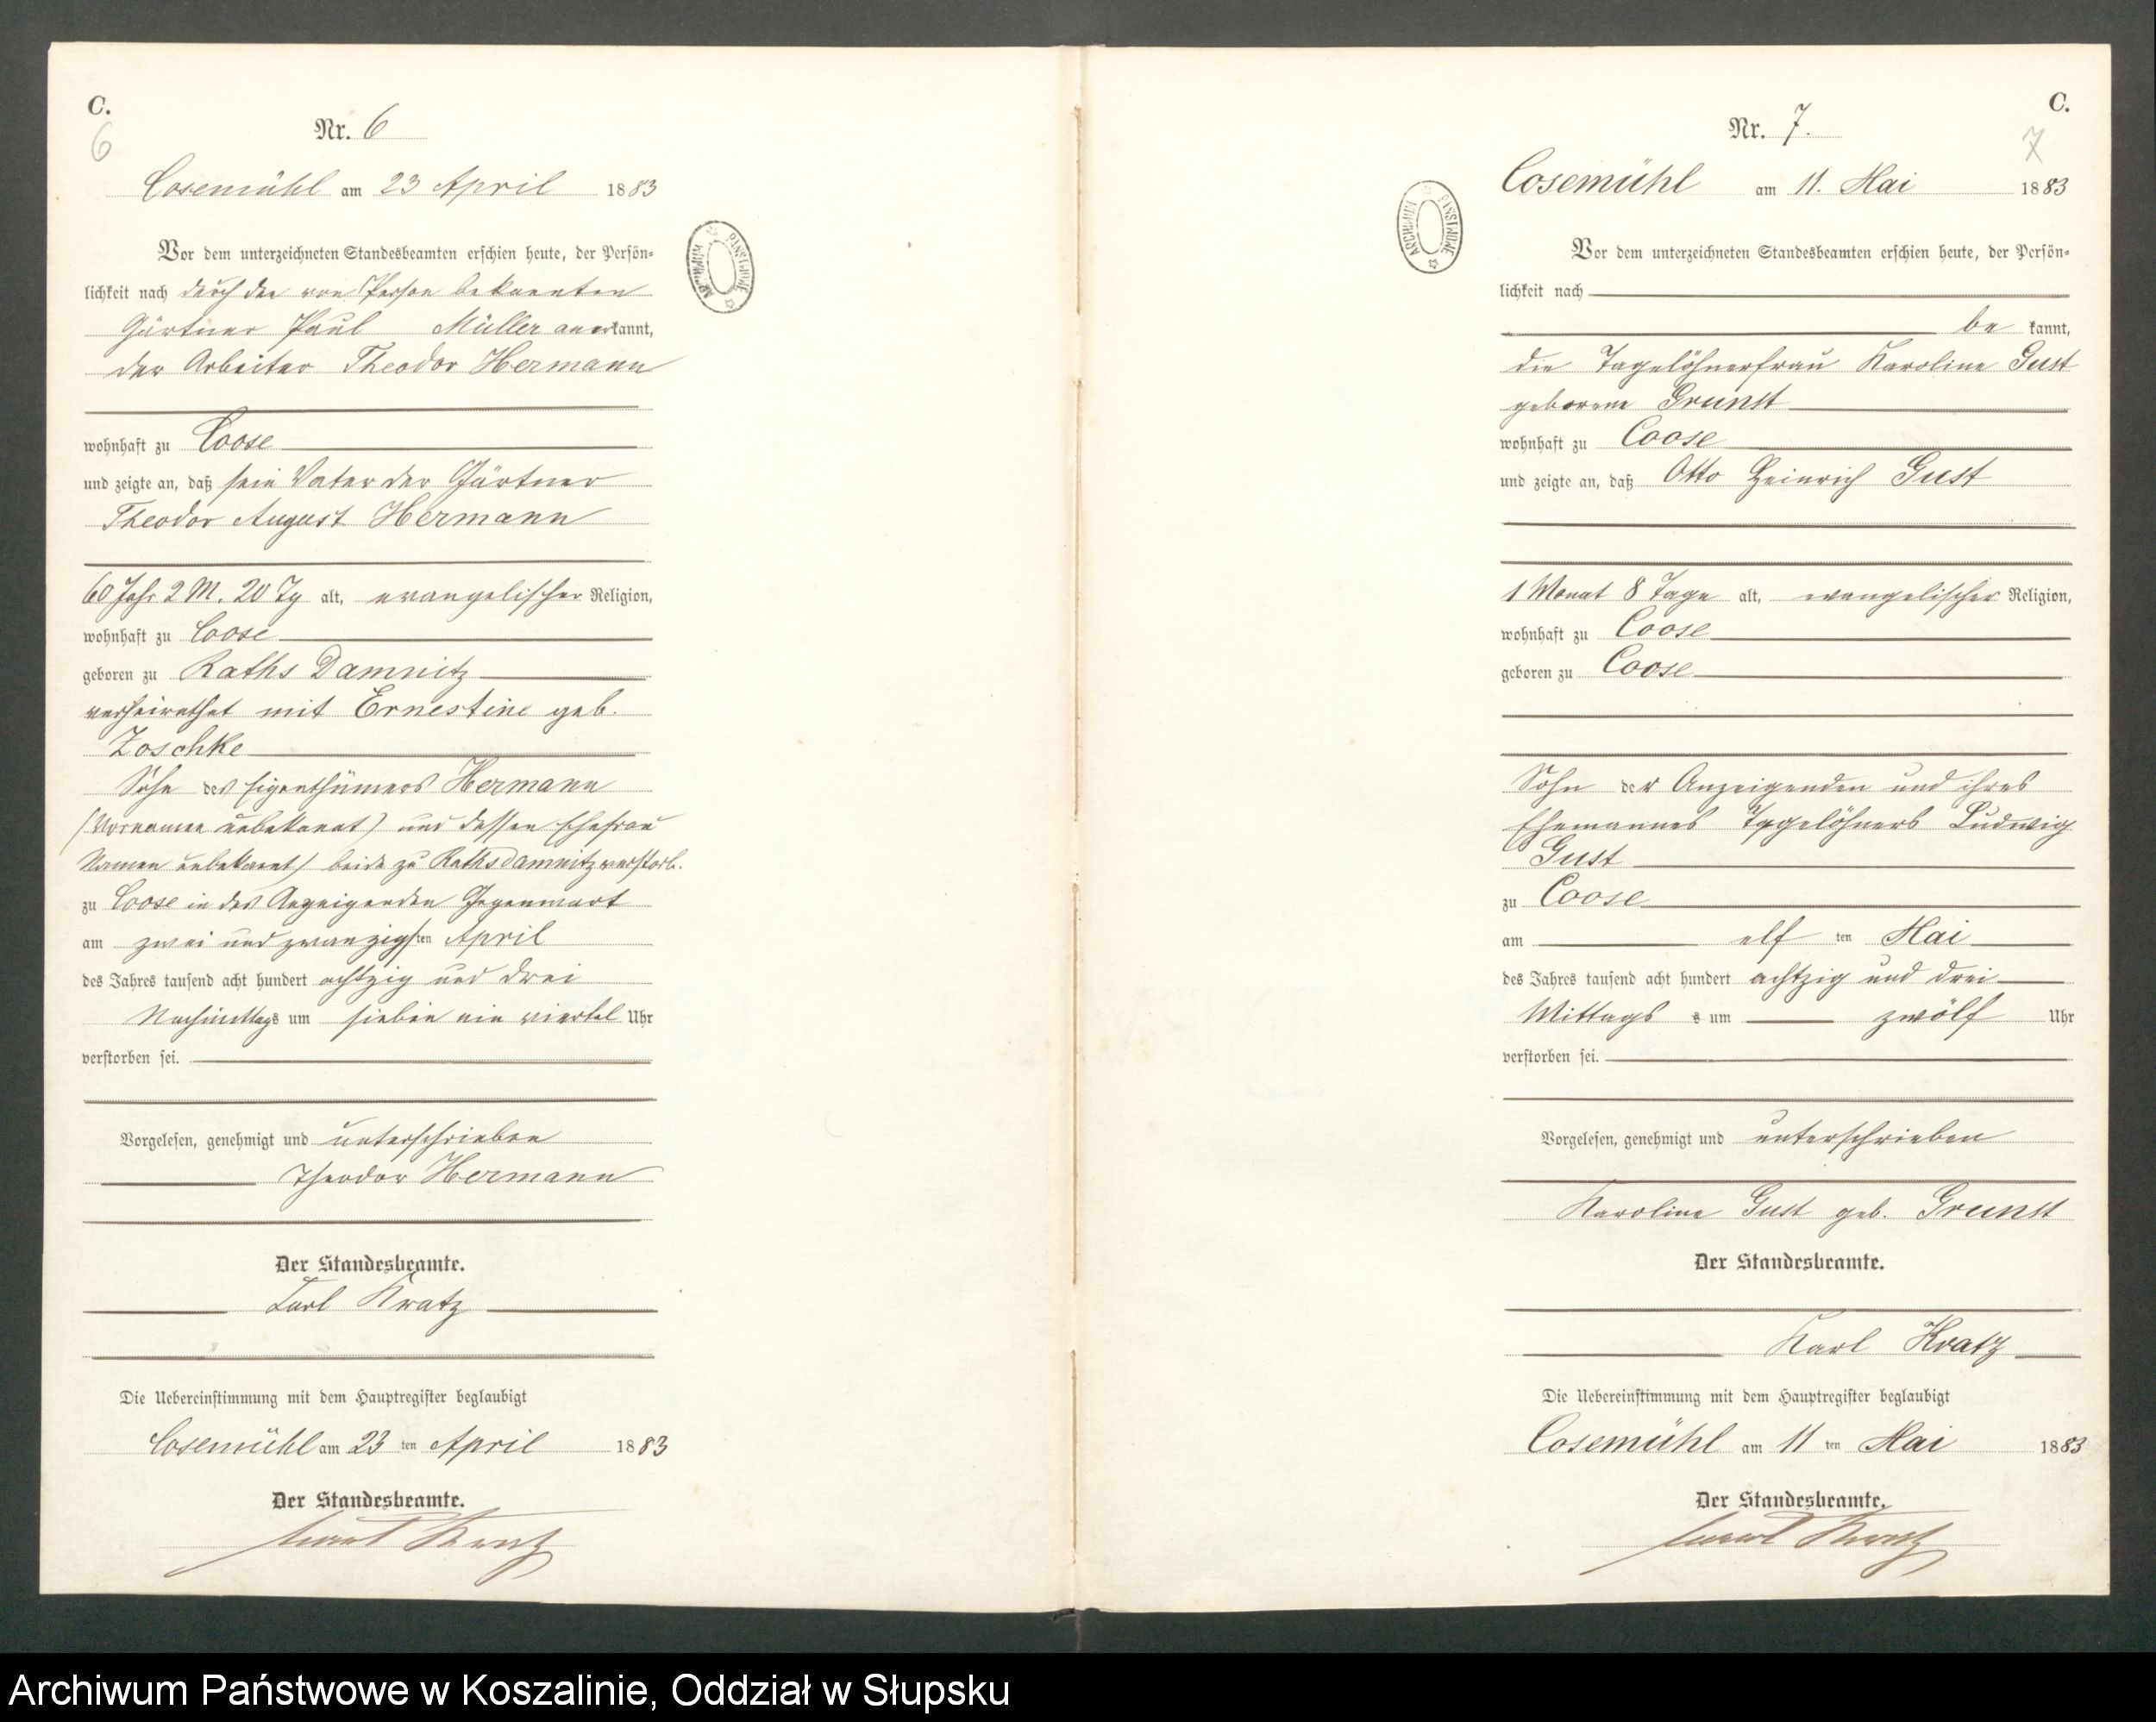 C.
6
Nr. 6
Cosemühl am 23 April 1883
Vor dem unterzeichneten Standesbeamten erschien heute, der Persön-
lichkeit nach durch den von Person bekannten
Gärtner Paul Müller anerkannt,
der Arbeiter Theodor Hermann
wohnhaft zu Coose
und zeigte an, daß sein Vater der Gärtner
Theodor August Hermann
60 Jahr 2 M. 20 Tg alt, evangelischer Religion,
wohnhaft zu Coose
geboren zu Raths Damnitz
verheirathet mit Ernestine geb.
Zoschke
Sohn des Eigenthümers Hermann
(Vornamen unbekannt) und dessen Ehefrau
Namen unbekannt) beide zu Rathsdamnitz verstorb.
zu Coose in des Anzeigenden Gegenwart
am zwei und zwanzigsten April
des Jahres tausend acht hundert achtzig und drei
Nachmittags um sieben ein viertel Uhr
verstorben sei.
Vorgelesen, genehmigt und unterschrieben
Theodor Hermann
Der Standesbeamte.
Carl Kratz
Die Uebereinstimmung mit dem Hauptregister beglaubigt
Cosemühl am 23 ten April 1883
Der Standesbeamte.
Carl Kratz
ARCHIWUM PAŃSTWOWE
C.
7
Nr. 7.
Cosemühl am 11. Mai 1883
Vor dem unterzeichneten Standesbeamten erschien heute, der Persön-
lichkeit nach
be kannt,
die Tagelöhnerfrau Karoline Gust
geborene Grunst
wohnhaft zu Coose
und zeigte an, daß Otto Heinrich Gust
1 Monat 8 Tage alt, evangelischer Religion,
wohnhaft zu Coose
geboren zu Coose
Sohn der Anzeigenden und ihres
Ehemannes Tagelöhners Ludwig
Gust
zu Coose
am elf ten Mai
des Jahres tausend acht hundert achtzig und drei
Mittags s um zwölf Uhr
verstorben sei.
Vorgelesen, genehmigt und unterschrieben
Karoline Gust geb. Grunst
Der Standesbeamte.
Karl Kratz
Die Uebereinstimmung mit dem Hauptregister beglaubigt
Cosemühl am 11 ten Mai 1883
Der Standesbeamte.
Carl Kratz
ARCHIWUM PAŃSTWOWE
Archiwum Państwowe w Koszalinie, Oddział w Słupsku